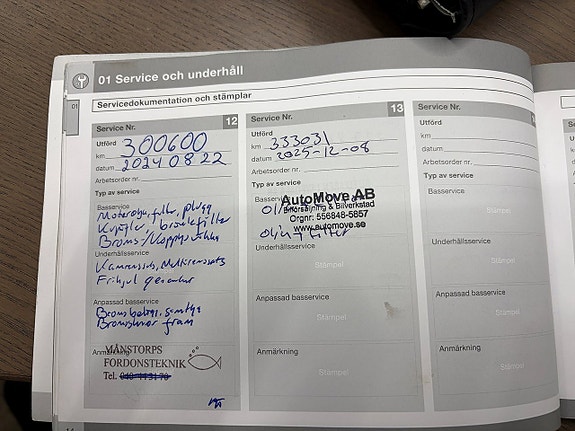 01 Service och underhåll
01
Servicedokumentation och stämplar
Service Nr. 12
Utförd
km 300600
datum 20240822
Arbetsorder nr.
Typ av service
Basservice
Motorolja, filter, plugg
Kupéfilter, bränslefilter
Broms/Kopplingsvätska
Underhållsservice
Kamremssats, Multiremssats
Frihjul generator
Anpassad basservice
Bromsbelägg, samtliga
Bromsskivor fram
Anmärkning
MÅNSTORPS
FORDONSTEKNIK
Tel.
Service Nr. 13
Utförd
km 333031
datum 2025-12-08
Arbetsorder nr.
Typ av service
AutoMove AB
Bilförsäljning & Bilverkstad
Orgnr: 556848-5857
www.automove.se
Olja, filter
Underhållsservice
Stämpel
Anpassad basservice
Stämpel
Anmärkning
Stämpel
Service Nr.
Utförd
km
datum
Arbetsorder nr.
Typ av service
Basservice
Underhållsservice
Stämpel
Anpassad basservice
Stämpel
Anmärkning
Stämpel